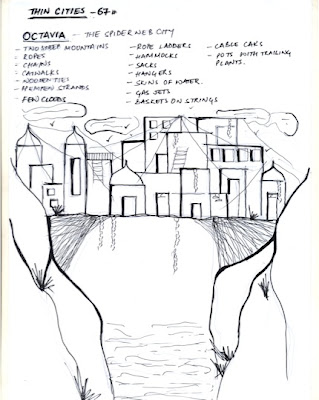 THIN CITIES - 67
OCTAVIA - THE SPIDERWEB CITY
- TWO STEEP MOUNTAINS
- ROPES
- CHAINS
- CATWALKS
- WOODEN TIES
- HEMPEN STRANDS
- FEW CLOUDS
- ROPE LADDERS
- HAMMOCKS
- SACKS
- HANGERS
- SKINS OF WATER.
- GAS JETS
- BASKETS ON STRINGS
- CABLE CARS
- POTS WITH TRAILING
PLANTS.